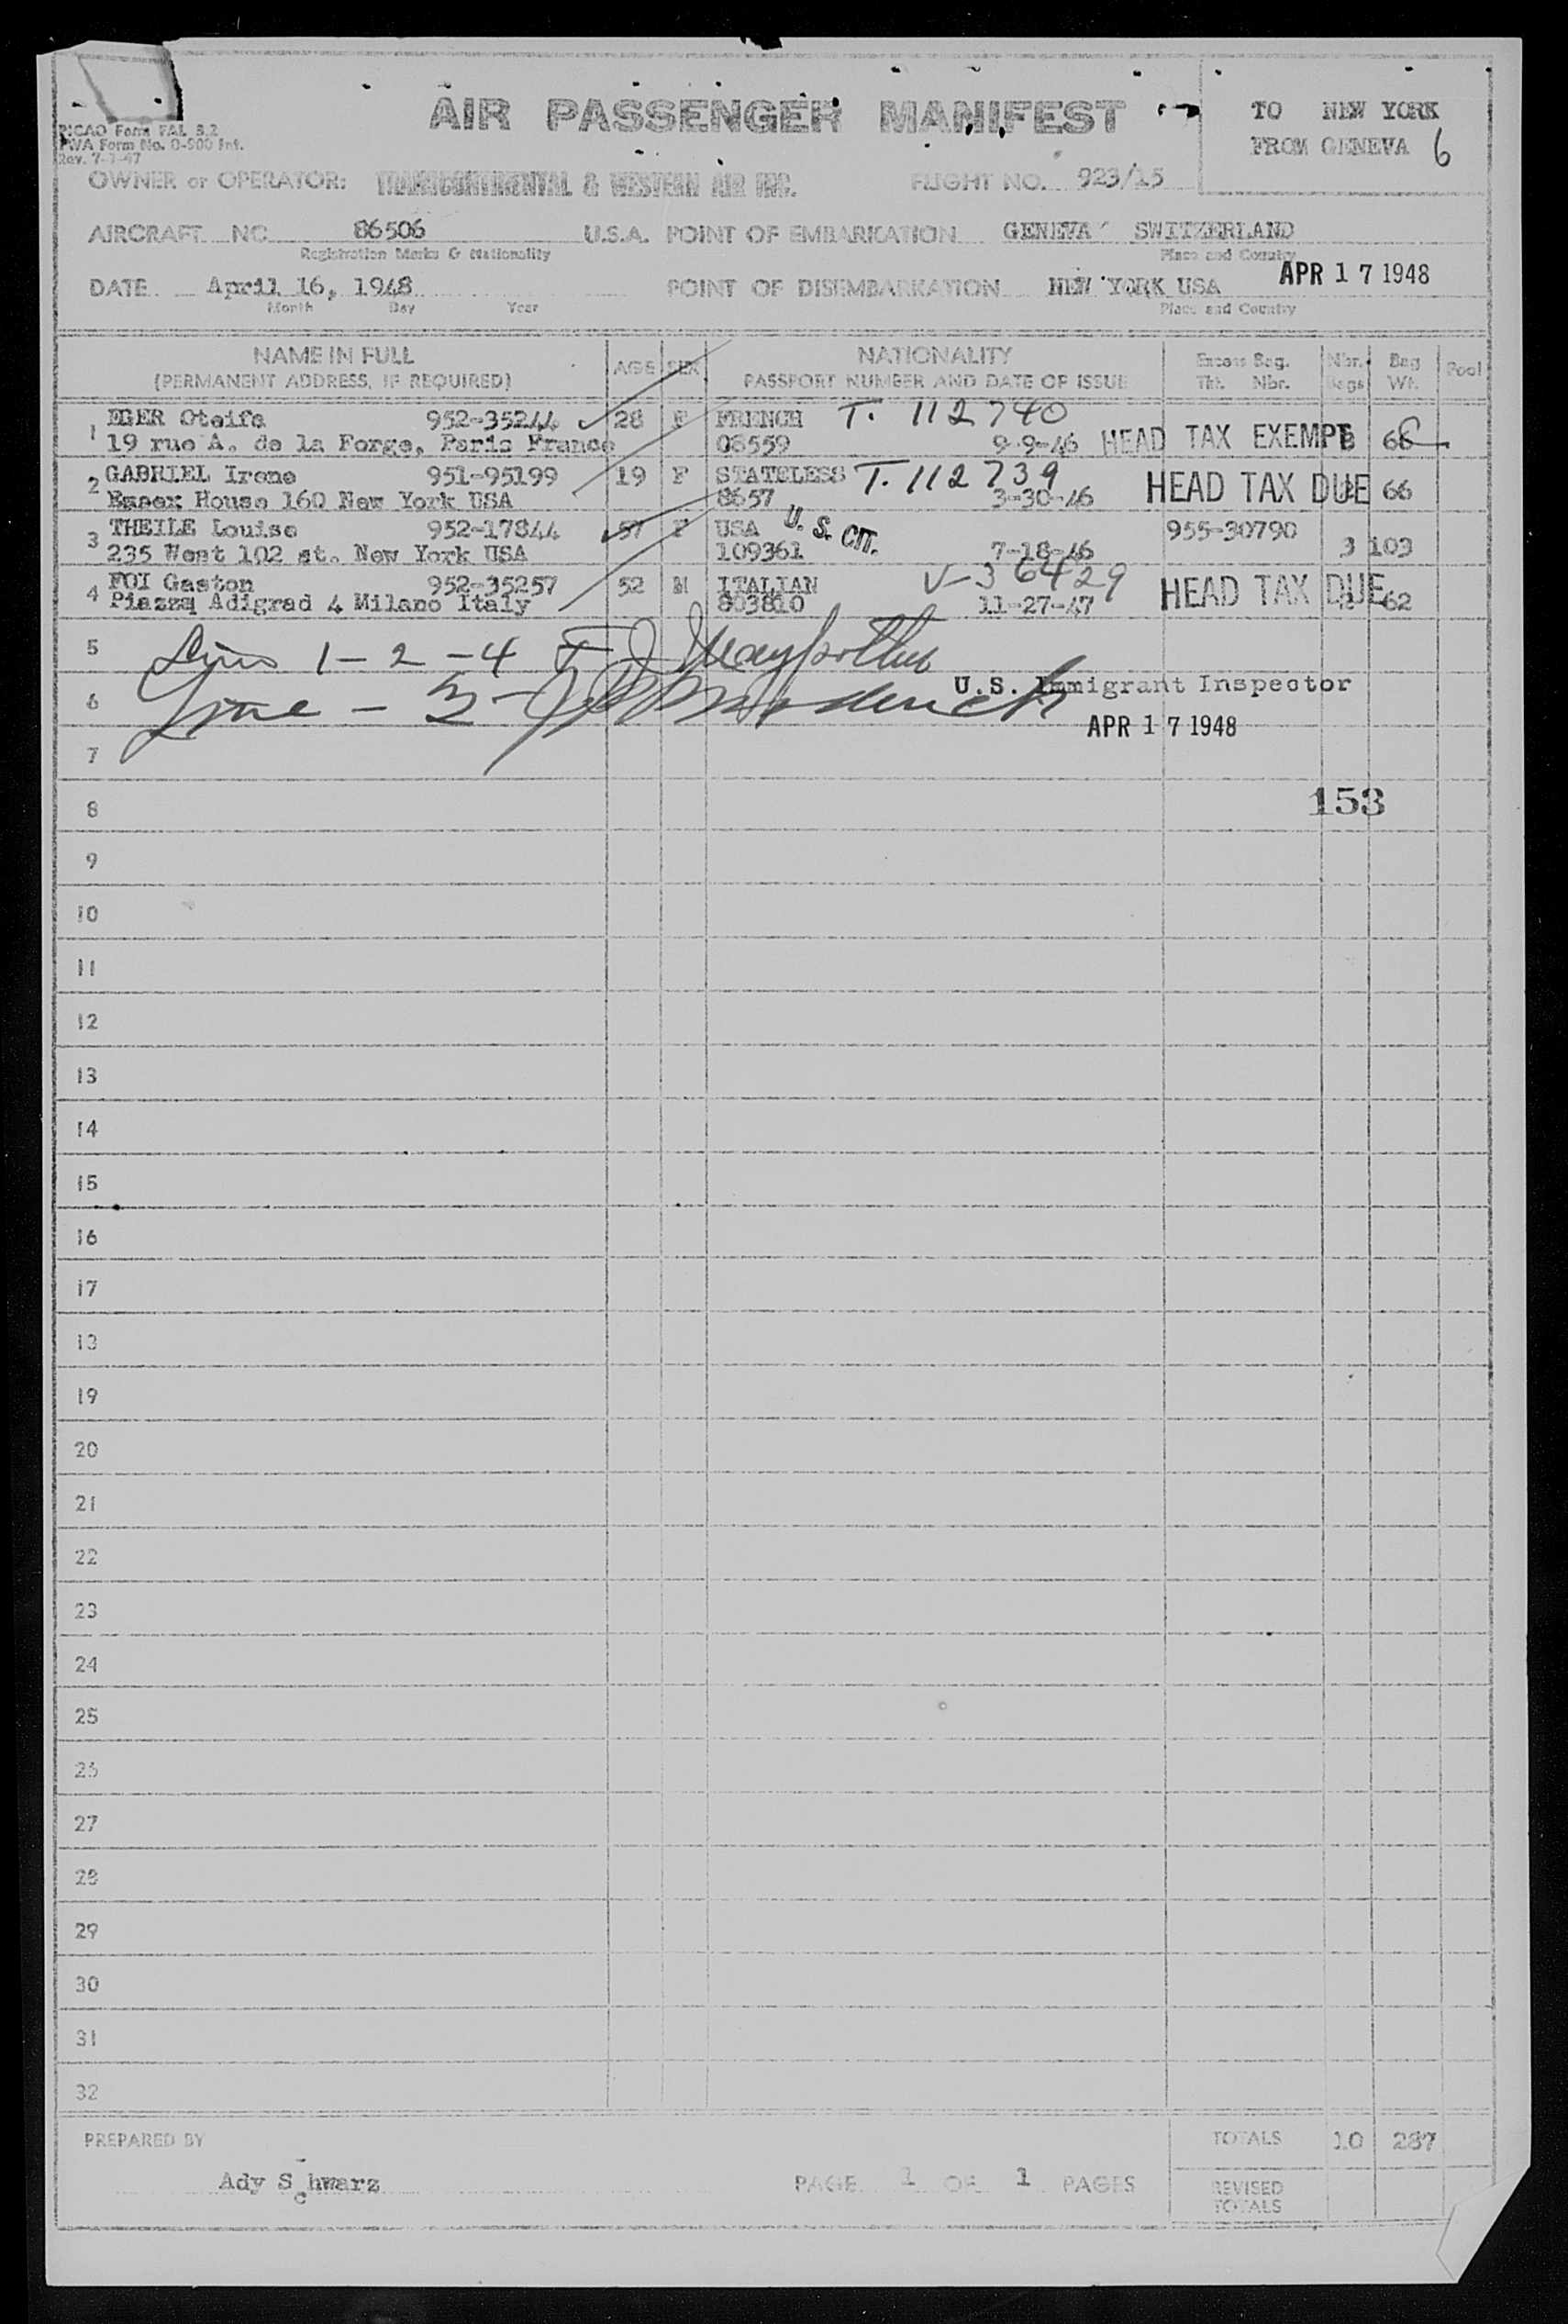 AIR PASSENGER MANIFEST
TO NEW YORK
FROM GENEVA 6
PICAO Form FAL 3.2
TWA Form No. 0-900 Int.
Rev. 7-1-47
OWNER or OPERATOR: TRANSCONTINENTAL & WESTERN AIR INC. FLIGHT NO. 923/15
AIRCRAFT NC 86506 U.S.A. POINT OF EMBARKATION GENEVA SWITZERLAND
Registration Marks & Nationality Place and Country
DATE April 16, 1948 POINT OF DISEMBARKATION NEW YORK USA APR 17 1948
Month Day Year Place and Country
NAME IN FULL AGE SEX NATIONALITY Excess Bag. Nbr. Bag Pool
(PERMANENT ADDRESS, IF REQUIRED) PASSPORT NUMBER AND DATE OF ISSUE Tkt. Nbr. Bags Wt.
1 EGER Oteifa 952-35244 28 F FRENCH T. 112740
19 rue A. de la Forge, Paris France 08559 9-9-46 HEAD TAX EXEMPT
2 GABRIEL Irene 951-95199 19 F STATELESS T. 112739
Essex House 160 New York USA 8657 3-30-46 HEAD TAX DUE 66
3 THEILE Louise 952-17844 57 F USA U. S. CIT. 955-30790
235 West 102 st. New York USA 109361 7-18-46 3 103
4 FOI Gaston 952-35257 52 M ITALIAN V-36429
Piazza Adigrad 4 Milano Italy 803810 11-27-47 HEAD TAX DUE 62
5 Lines 1-2-4
6 Line - 3 U.S. Immigrant Inspector
APR 17 1948
7
153
8
9
10
11
12
13
14
15
16
17
18
19
20
21
22
23
24
25
26
27
28
29
30
31
32
PREPARED BY TOTALS 10 287
Ady Schwarz PAGE 1 OF 1 PAGES REVISED
TOTALS